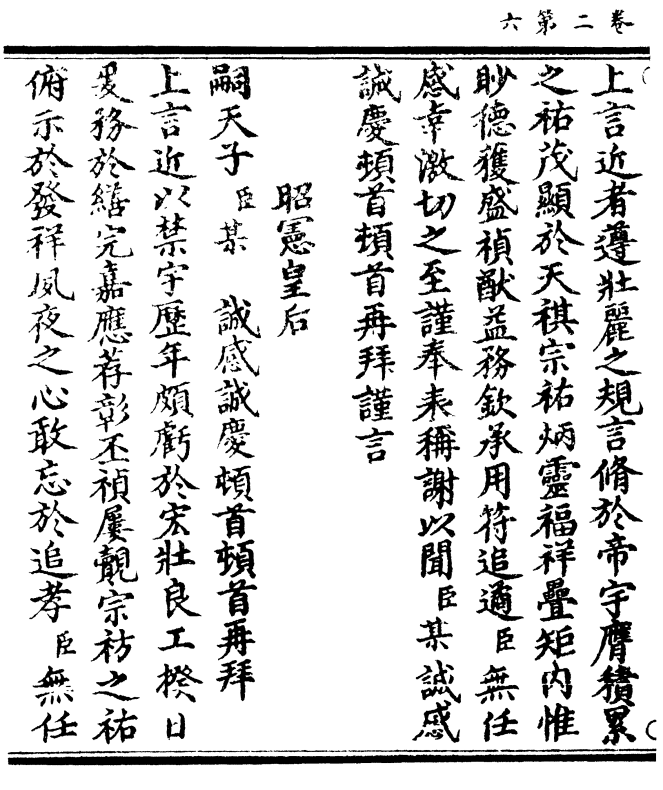 卷二第六
上言近者遵壯麗之規言脩於帝宇膺積累
之祐茂顯於天祺宗祐炳靈福祥疊矩內惟
眇德獲盛禎猷益務欽承用符追遹臣無任
感幸激切之至謹奉表稱謝以聞臣某誠感
誠慶頓首頓首再拜謹言
昭憲皇后
嗣天子臣某 誠感誠慶頓首頓首再拜
上言近以禁宇歷年頗虧於宏壯良工揆日
爰務於繕完嘉應荐彰丕禎屢覿宗祊之祐
俯示於發祥夙夜之心敢忘於追孝臣無任